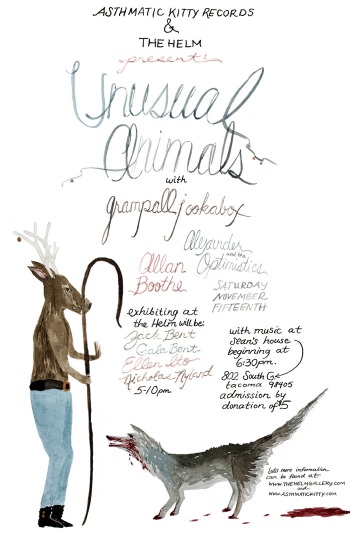 ASTHMATIC KITTY RECORDS
&
THE HELM
present:
Unusual
Animals
with
grampall jookabox
Alexander
and the
Optimistics
Allan
Boothe
SATURDAY
NOVEMBER
FIFTEENTH
exhibiting at
the Helm will be:
Jack Bent
Gala Bent
Ellen Ito
Nicholas Nyland
5-10pm
with music at
Sean's house
beginning at
6:30pm.
802 South G
tacoma 98405
admission by
donation of $5
Lots more information
can be found at
WWW.THEHELMGALLERY.COM
and
WWW.ASTHMATICKITTY.COM